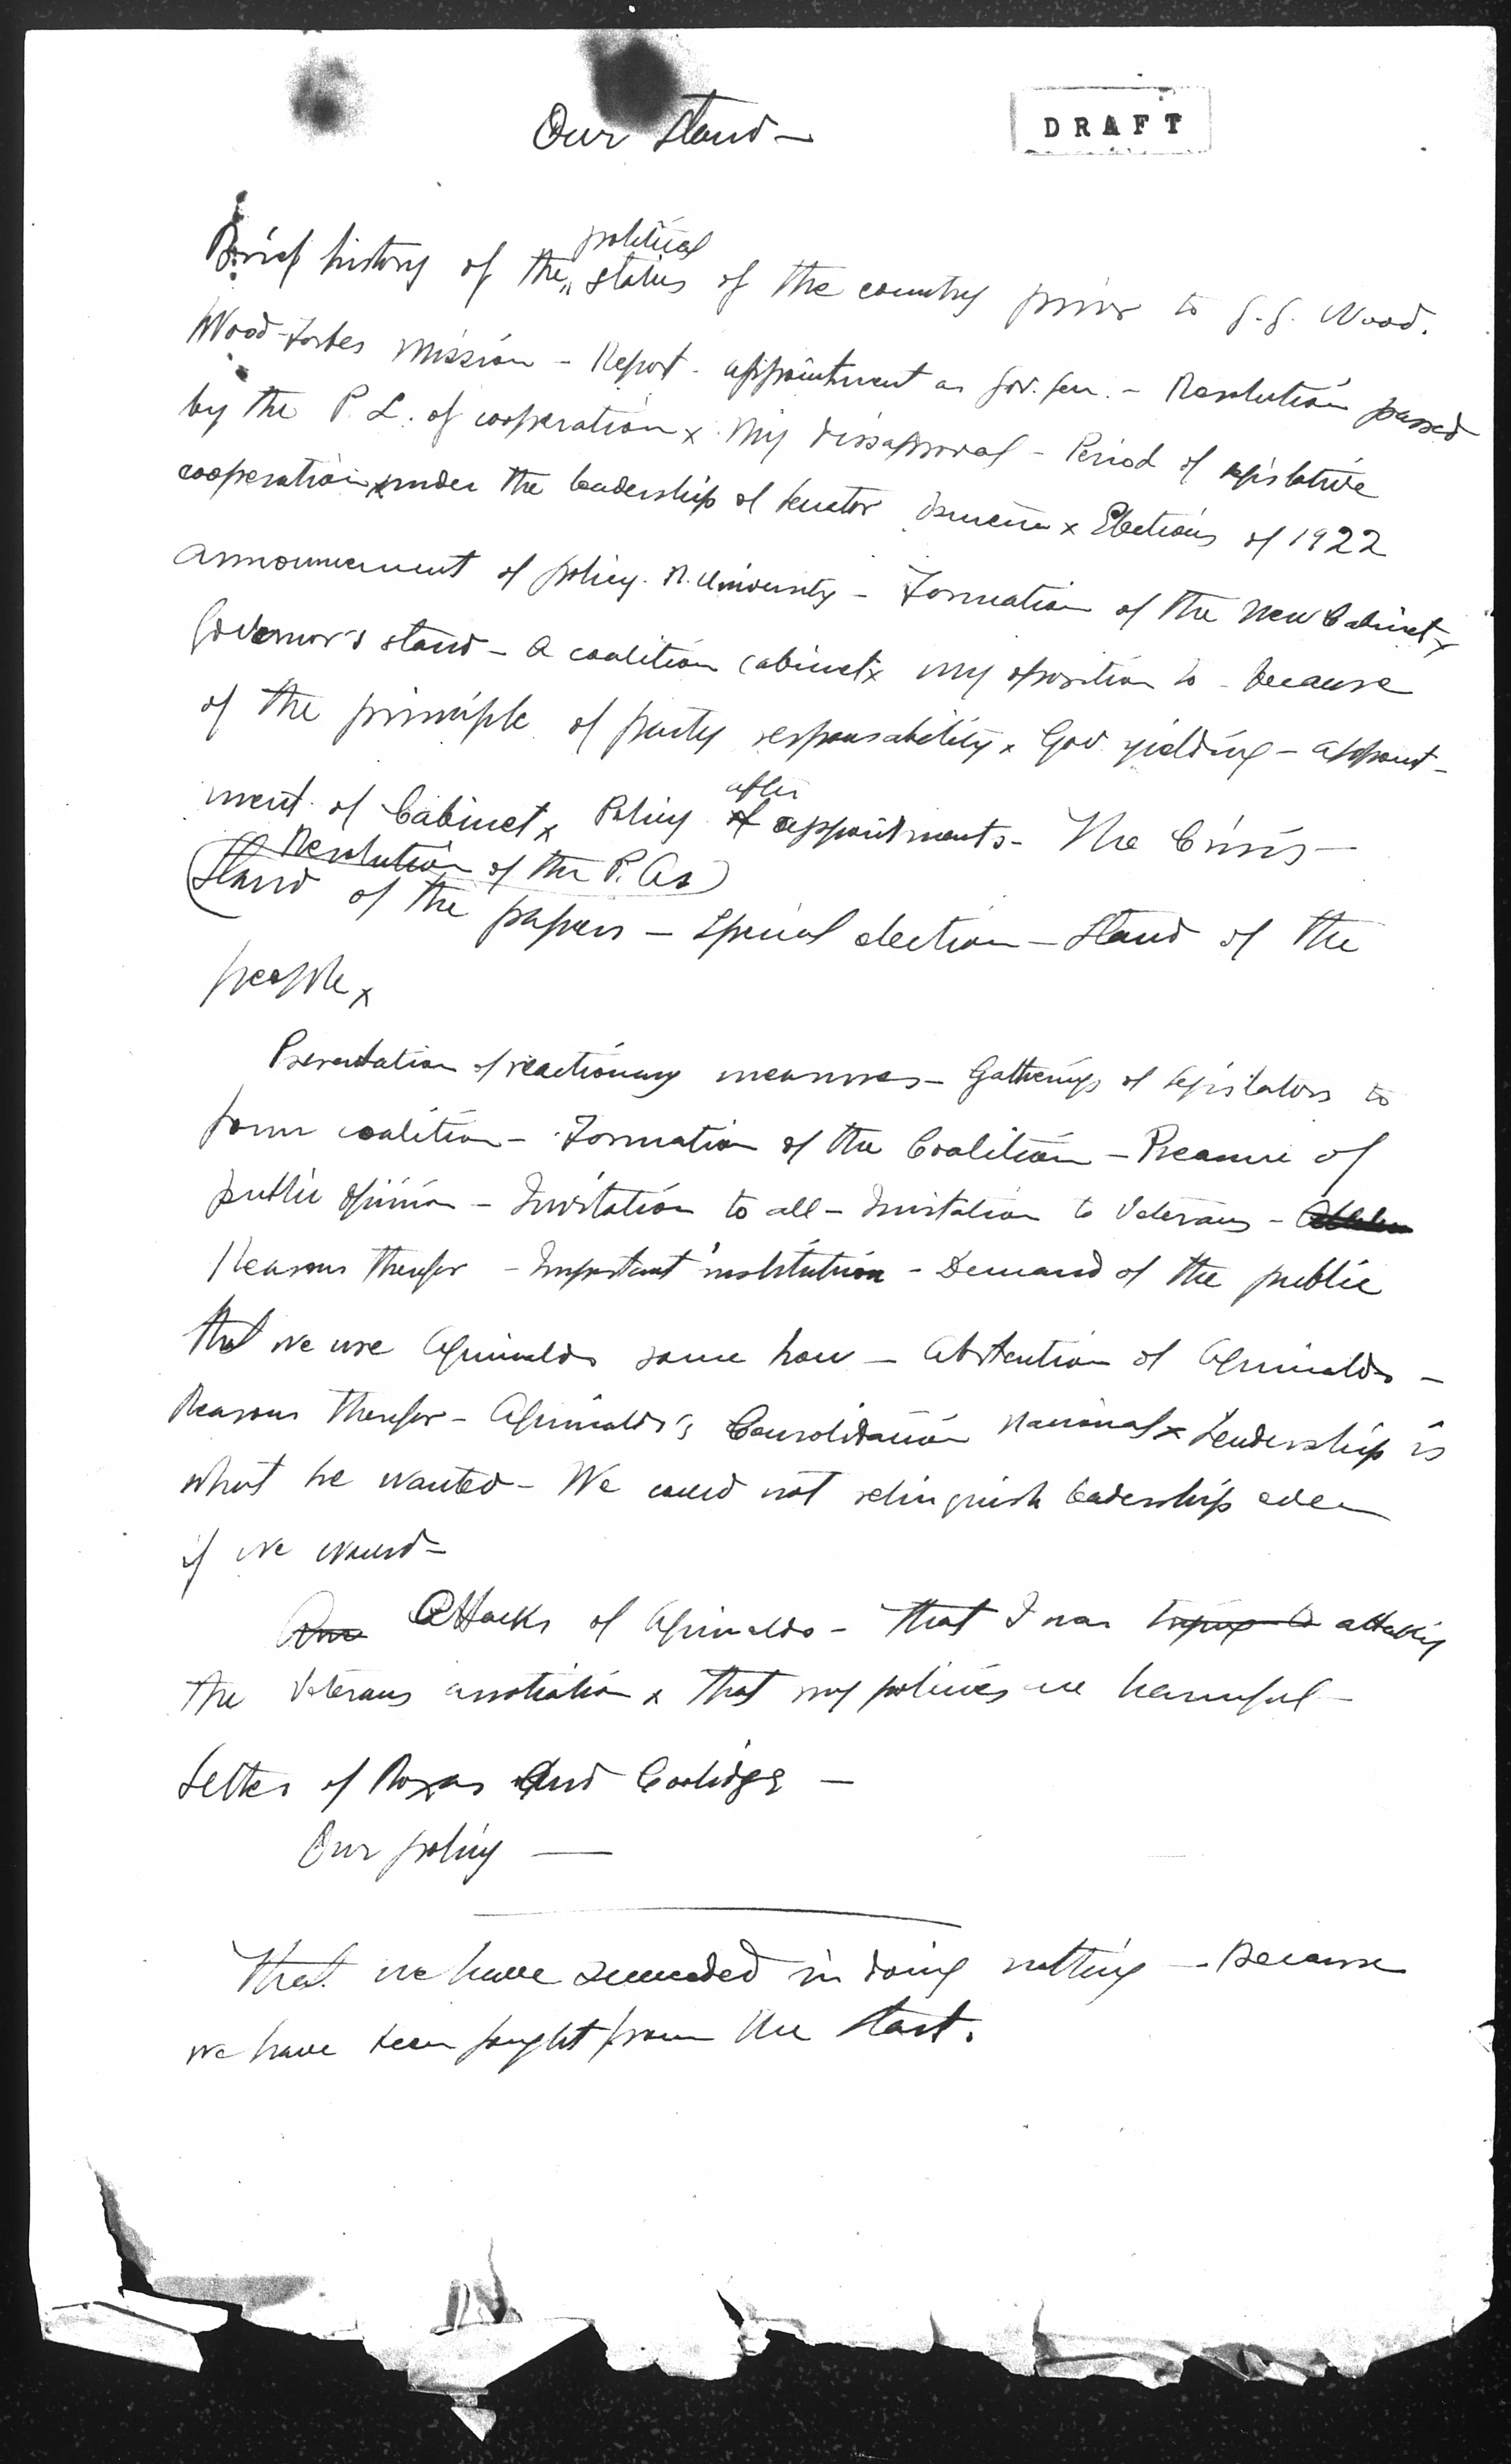 Our Stand –
DRAFT
political
Brief history of the „ status of the country prior to G. G. Wood.
Wood-Forbes Mission – Report – appointment as Gov. Gen. – Resolution passed
by the P. L. of cooperation x My dissaproval – Period of legislative
cooperation x under the leadership of Senator Osmeña x Elections of 1922
announcement of policy. N. University – Formation of the New Cabinet x
Governor's stand – a coalition cabinet x my oposition to – because
of the principle of party responsability x Gov. yielding – appoint-
after
ment of Cabinet x Policy of appointments – The Crisis –
Resolution of the P. As
(Stand of the papers – Special election – Stand of the
people x
Presentation of reactionary measures – Gatherings of legislators to
form coalition – Formation of the Coalition – Preasure of
public opinion – Invitation to all – Invitation to Veterans –
Reasons therefor – Important institution – Demand of the public
that we use Aguinaldo some how – Abstention of Aguinaldo –
Reasons therefor – Aguinaldo's Consolidación Nacional x Leadership is
what he wanted – We could not relinquish leadership even
if we would –
Attacks of Aguinaldo – That I was trying to attacking
the Veterans association x That my policies are harmful –
Letter of Roxas and Coolidge –
Our policy —
That we have succeeded in doing nothing – because
we have been fought from the start.